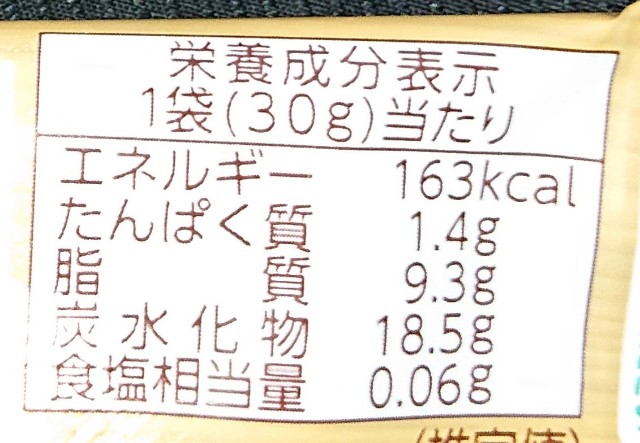 栄養成分表示
1袋(30g)当たり
エネルギー 163kcal
たんぱく質 1.4g
脂質 9.3g
炭水化物 18.5g
食塩相当量 0.06g
(推定値)